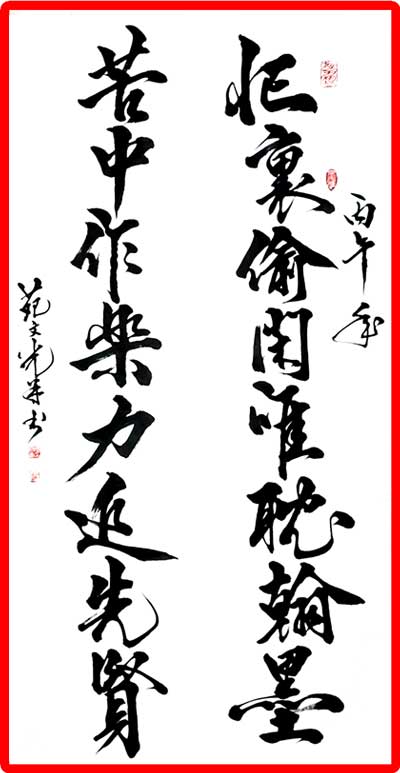 丙午年
忙裏偷閑唯耽翰墨
苦中作樂力追先賢
范文光并书